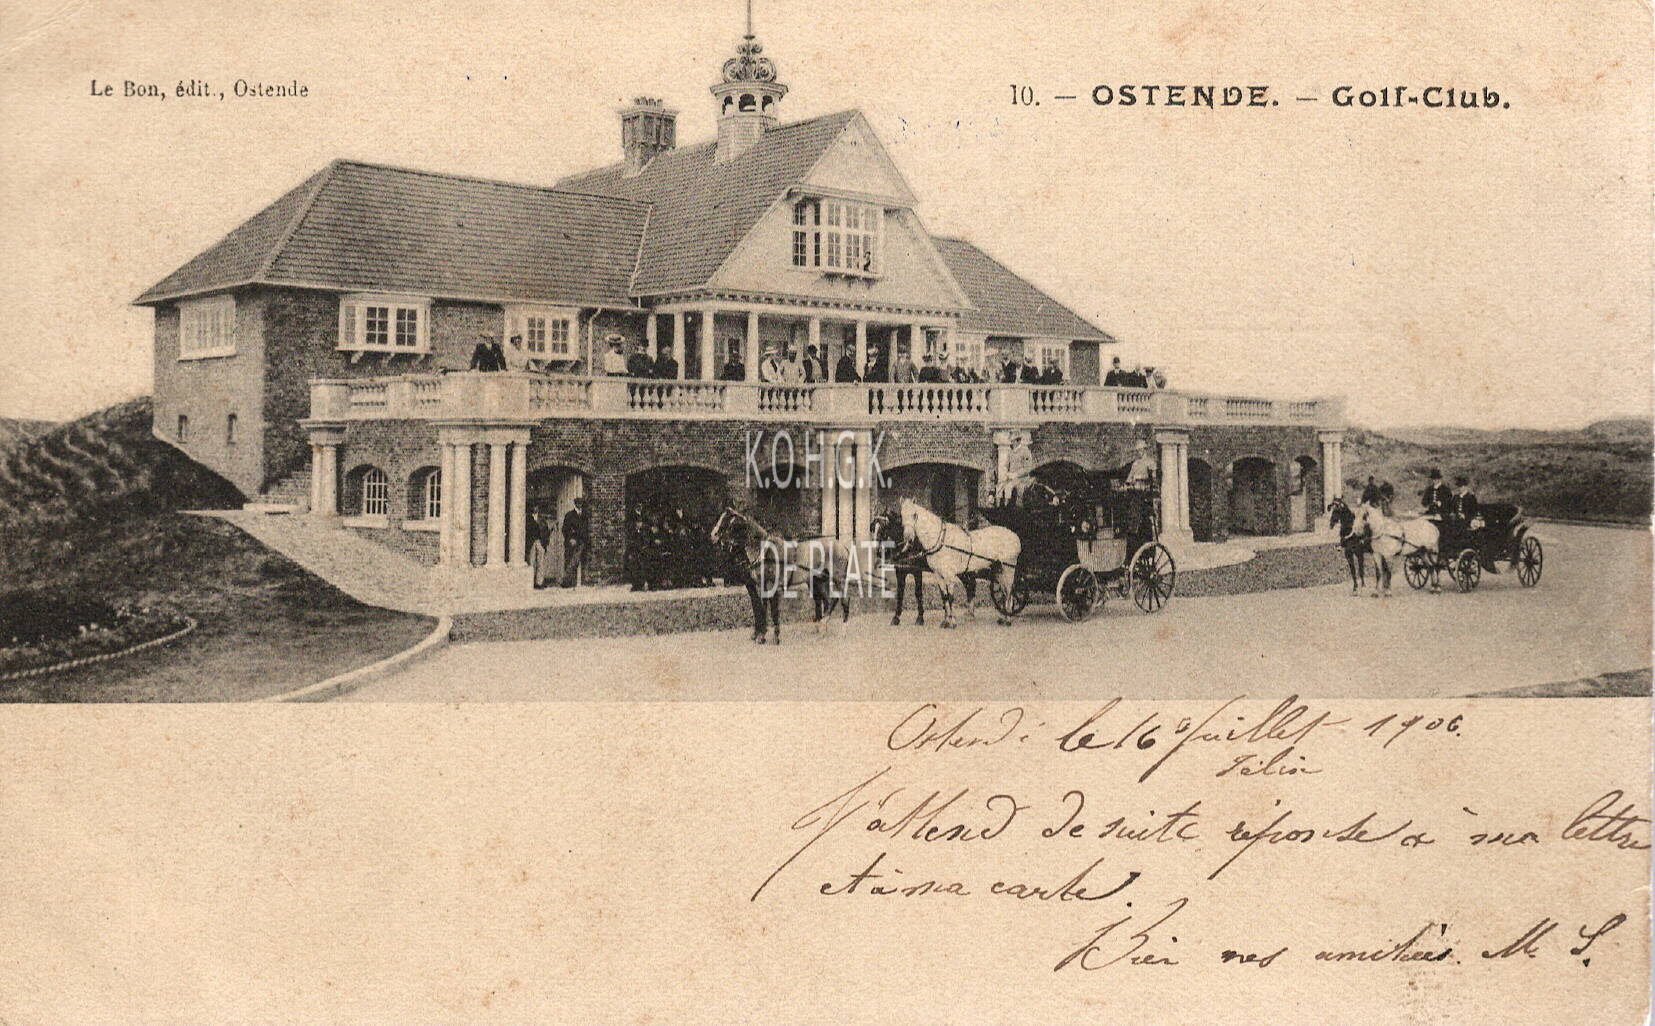 Le Bon, édit., Ostende
10. — OSTENDE. — Golf-Club.
K.O.H.G.K.
DE PLATE
Ostende le 16 Juillet 1906.
J'attend de suite réponse à ma lettre
et à ma carte.
Bien nos amitiés. M. S.